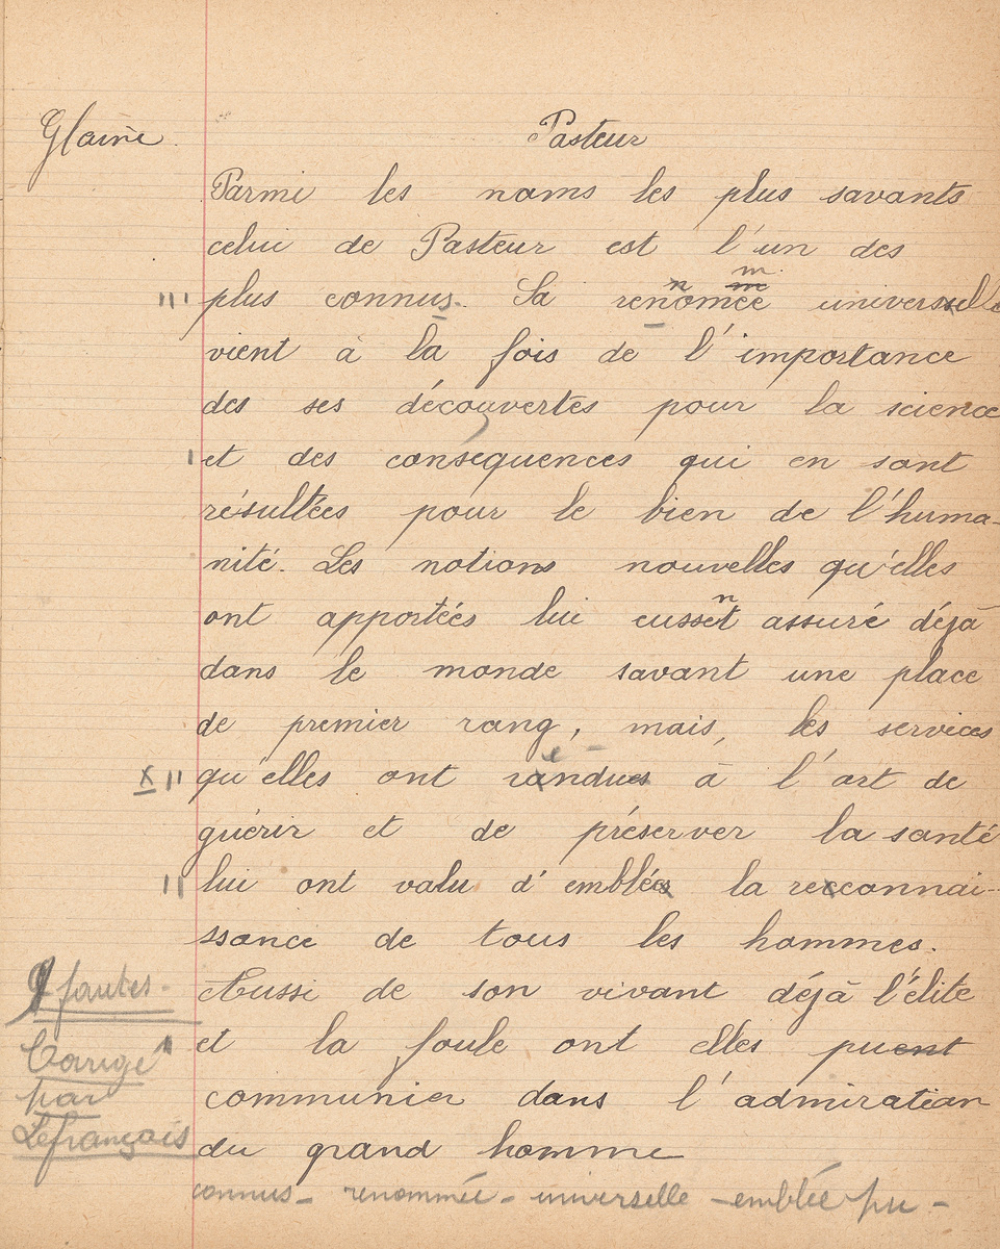 Glaine Pasteur
Parmi les noms les plus savants
celui de Pasteur est l'un des
plus connus. Sa renomée universelle
vient à la fois de l'importance
des ses découvertes pour la science
et des consequences qui en sont
résultées pour le bien de l'huma-
nité. Les notions nouvelles qu'elles
ont apportées lui eussent assuré déjà
dans le monde savant une place
de premier rang, mais, les services
qu'elles ont rendues à l'art de
guérir et de préserver la santé
lui ont valu d'emblée la reconnai-
ssance de tous les hommes.
Aussi de son vivant déjà l'élite
et la foule ont elles pu
communier dans l'admiration
du grand homme
9 fautes.
Corrigé
par
Lefrançais
connus - renommée - universelle - emblée pu -